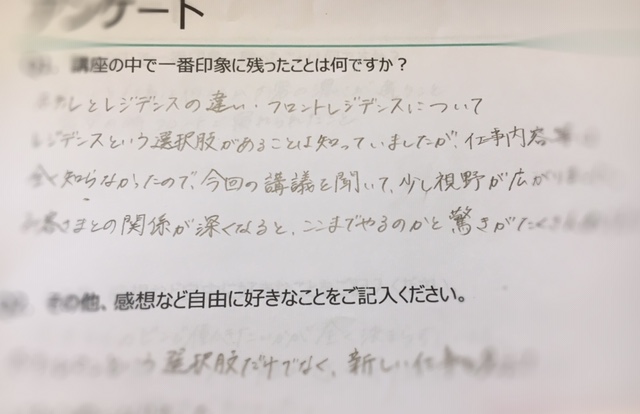 アンケート
講座の中で一番印象に残ったことは何ですか？
ホテルとレジデンスの違い・フロントレジデンスについて
レジデンスという選択肢があることは知っていましたが、仕事内容
全く知らなかったので、今回の講議を聞いて、少し視野が広が
お客さまとの関係が深くなると、ここまでやるのかと驚きがたくさん
その他、感想など自由に好きなことをご記入ください。
という選択肢だけでなく、新しい仕事